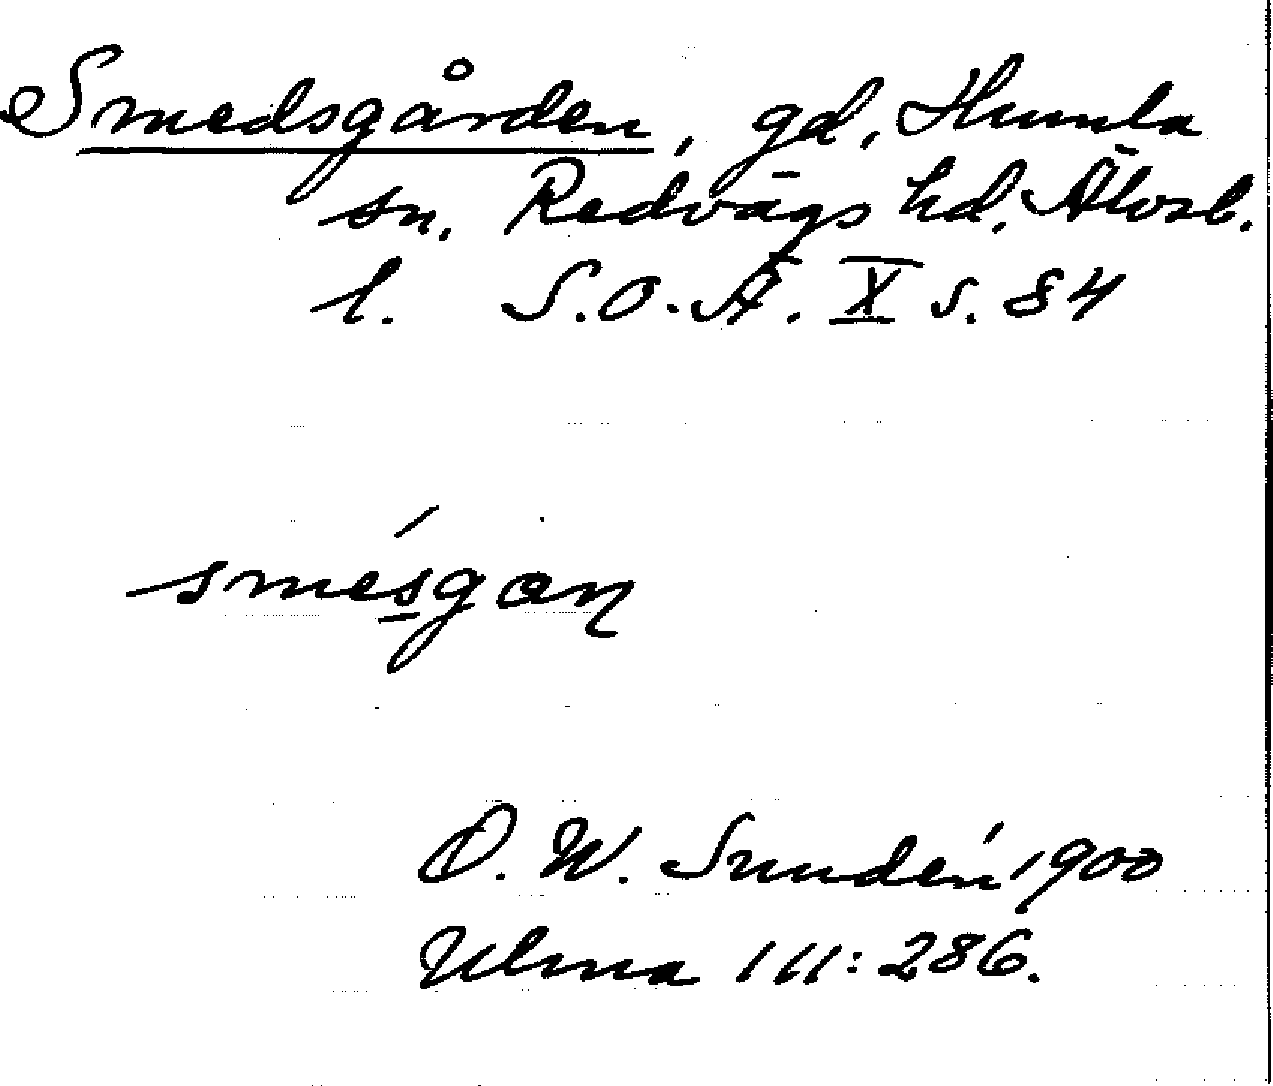 Smedsgården, gd, Humla
sn. Redvägs hd. Älvsb.
l. S.O.Ä. X s. 84
smésgan
D. W. Sundén 1900
Ulma 111:286.